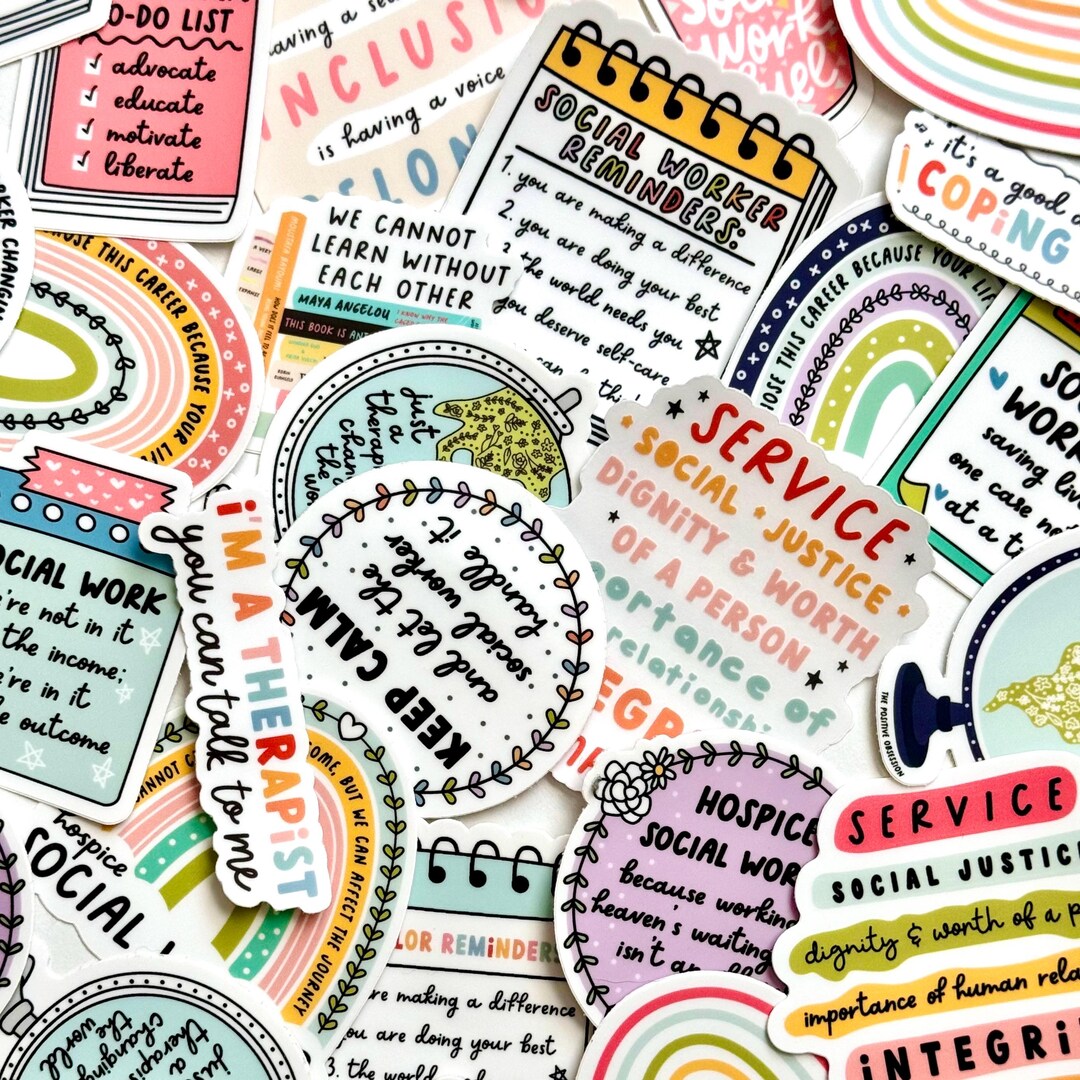 O-DO LIST
advocate
educate
motivate
liberate
having a
INCLUSI
is having a voice
SOCIAL WORKER
REMINDERS:
1. you are making a difference
2. you are doing your best
3 the world needs you
you deserve self-care
can
work
it's a good
COPING
WE CANNOT
LEARN WITHOUT
EACH OTHER
MAYA ANGELOU
I KNOW WHY THE
THIS BOOK IS ANT
THIS CAREER BECAUSE YOUR LI
THIS CAREER BECAUSE YOUR LIF
just
a
therap
chan
the wo
SERVICE
SOCIAL JUSTICE
DIGNITY & WORTH
OF A PERSON
portance of
relationshi
EGR
SO
WOR
saving liv
one case no
at a t
OCIAL WORK
're not in it
the income;
're in it
e outcome
i'M A THERAPiST
you can talk to me
KEEP CALM
and let the
social worker
handle it
THE POSITIVE OBSESSION
OME, BUT WE CAN AFFECT THE JOURNEY
ANNOT C
hospice
SOCIAL
HOSPICE
SOCIAL WOR
because working
heaven's waiting
isn't a
SERVICE
SOCIAL JUSTIC
dignity & worth of a p
importance of human rela
iNTEGRi
LOR REMiNDERS
re making a difference
you are doing your best
3. the world
just
a
therapis
changing
the world